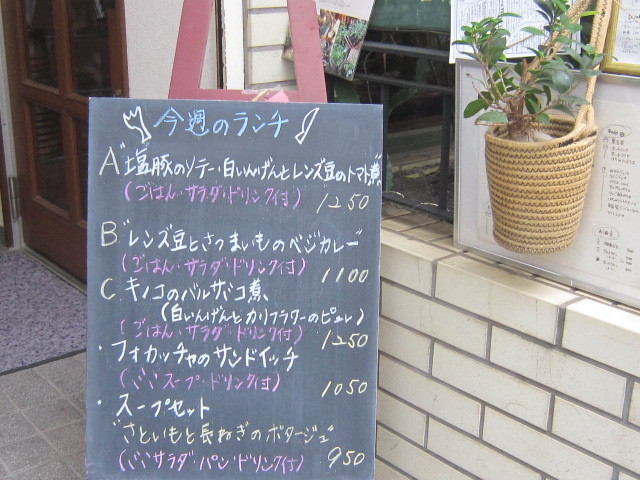 今週のランチ
A 塩豚のソテー・白いんげんとレンズ豆のトマト煮
(ごはん・サラダ・ドリンク付)
1250
B レンズ豆とさつまいものベジカレー
(ごはん・サラダ・ドリンク付)
1100
C キノコのバルサミコ煮、
(白いんげんとカリフラワーのピュレ)
(ごはん・サラダ・ドリンク付)
1250
・フォカッチャのサンドイッチ
(ミニスープ・ドリンク付)
1050
・スープセット
さといもと長ねぎのポタージュ
(ミニサラダ・パン・ドリンク付)
950